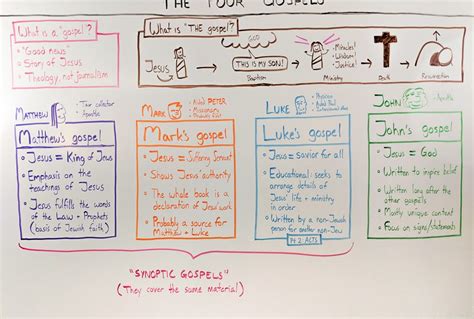 THE FOUR GOSPELS
What is a "gospel"?
• "Good news"
• Story of Jesus
• Theology, not journalism
What is "THE gospel"?
Jesus
GOD
THIS IS MY SON!
Baptism
Miracles!
Wisdom!
Justice!
Ministry
Death
Resurrection
MATTHEW
• Tax collector
• Apostle
Matthew's gospel
• Jesus = King of Jews
• Emphasis on the
teachings of Jesus
• Jesus fulfills the words
of the Law + Prophets
(basis of Jewish faith)
MARK
• Aided PETER
• Missionary
Mark's gospel
• Jesus = Suffering Servant
• Shows Jesus' authority
• The whole book is a
declaration of Jesus' work
• Probably a source for
Matthew + Luke
LUKE
• Physician
• Aided Paul
Luke's gospel
• Jesus = Savior for all
• Educational: seeks to
arrange details of
Jesus' life + ministry
in order
• Written by a non-Jewish
person for another non-Jew
Pt 2: ACTS
JOHN
• Apostle
John's gospel
• Jesus = God
• Written to inspire belief
• Written long after the
other gospels
• Mostly unique content
• Focus on signs/statements
"SYNOPTIC GOSPELS"
(They cover the same material)